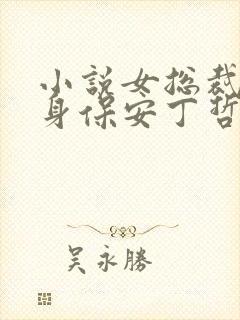 小説女総裁
身保安丁哲
吴永勝